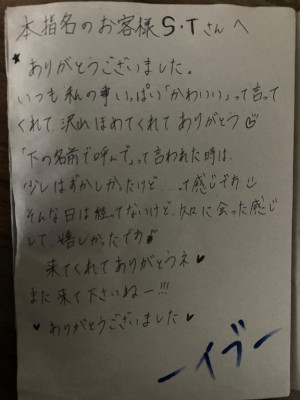 本指名のお客様S・Tさんへ
★ありがとうございました。
いつも私の事いっぱい「かわいい」って言って
くれて、沢山ほめてくれてありがとう♡
「下の名前で呼んで」って言われた時は、
少しはずかしかったけど...って感じです
そんな日は経ってないけど、久々に会った感じ
して、嬉しかったです♪
来てくれてありがとうネ♥
また来て下さいねー!!!
♥ありがとうございました♥
ーイブー